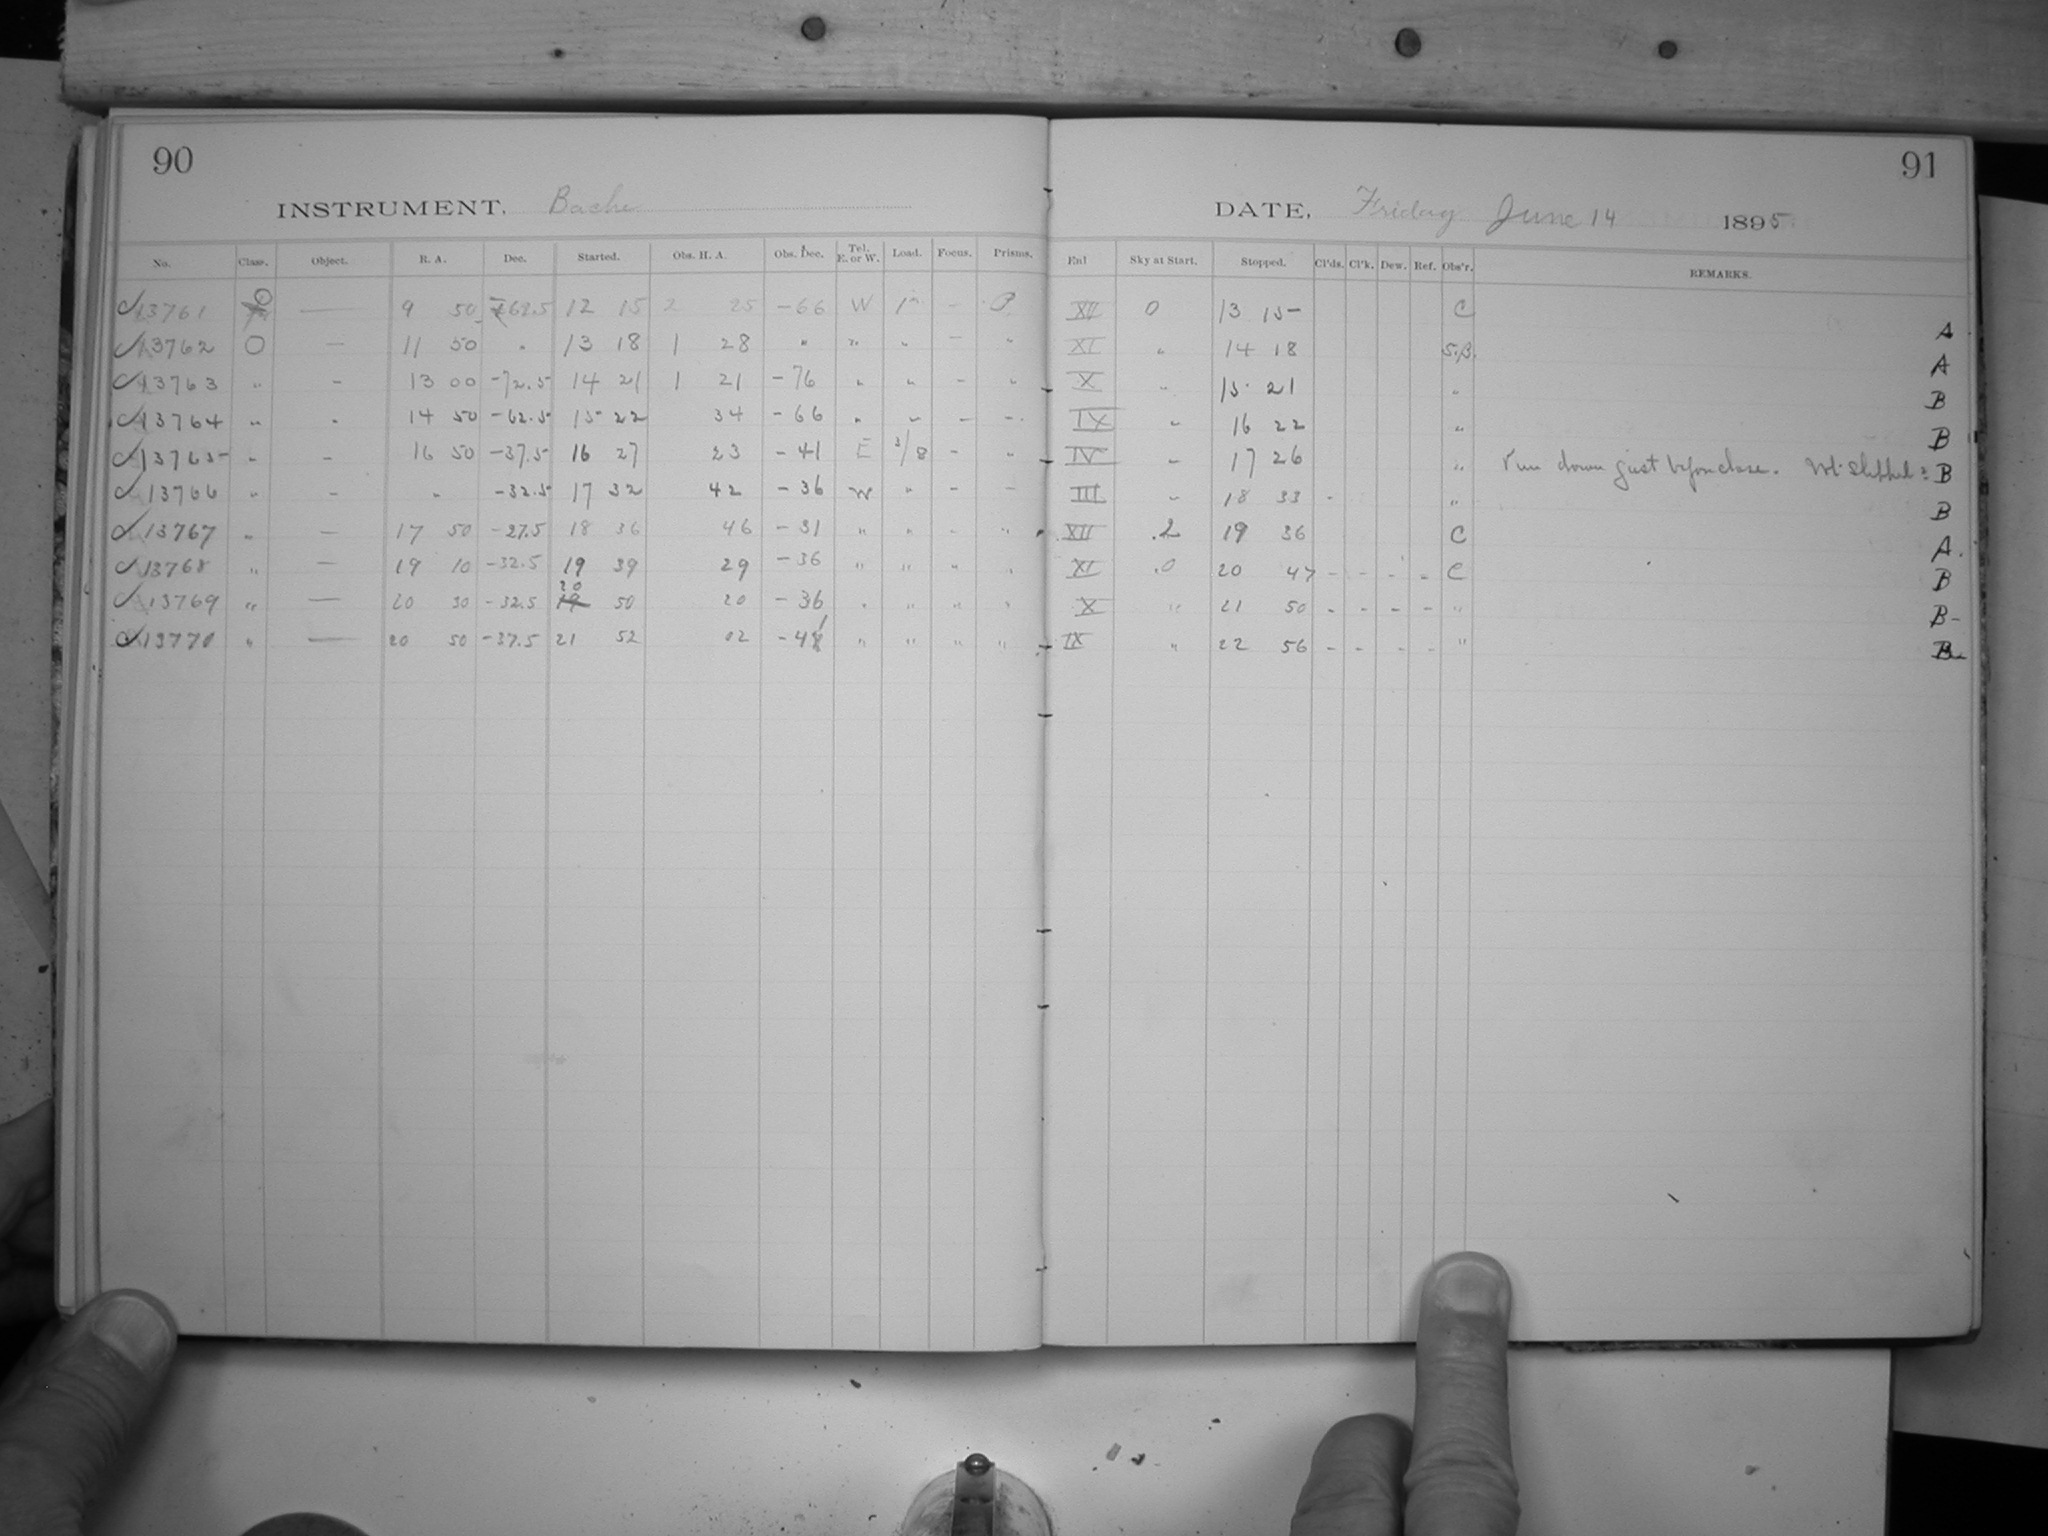 90
INSTRUMENT. Bache
No. Class. Object. R. A. Dec. Started. Obs. H. A. Obs. Dec. Tel. E. or W. Load. Focus. Prisms.
13761 O — 9 50 -62.5 12 15 2 25 -66 W - P
13762 O — 11 50 " 13 18 1 28 " " " - "
13763 " - 13 00 -72.5 14 21 1 21 -76 " " - "
13764 " - 14 50 -62.5 15 22 34 -66 " " - -
13765 " - 16 50 -37.5 16 27 23 -41 E 3/8 - "
13766 " - " -32.5 17 32 42 -36 W " - -
13767 " — 17 50 -27.5 18 36 46 -31 " " " "
13768 " — 19 10 -32.5 19 39 29 -36 " " " "
13769 " — 20 30 -32.5 20 50 20 -36 " " " "
13770 " — 20 50 -37.5 21 52 02 -41 " " " "
91
DATE, Friday June 14 1895
Enl Sky at Start. Stopped. Cl'ds. Cl'k. Dew. Ref. Obs'r. REMARKS.
XII 0 13 15 C A
XI " 14 18 S.B. A
X " 15 21 " B
IX " 16 22 " B
IV " 17 26 " run down just before close. Wt. slipped? B
III " 18 33 - " B
XII .2 19 36 C A.
XI .0 20 47 - - - - C B
X " 21 50 - - - - " B-
IX " 22 56 - - - - " B